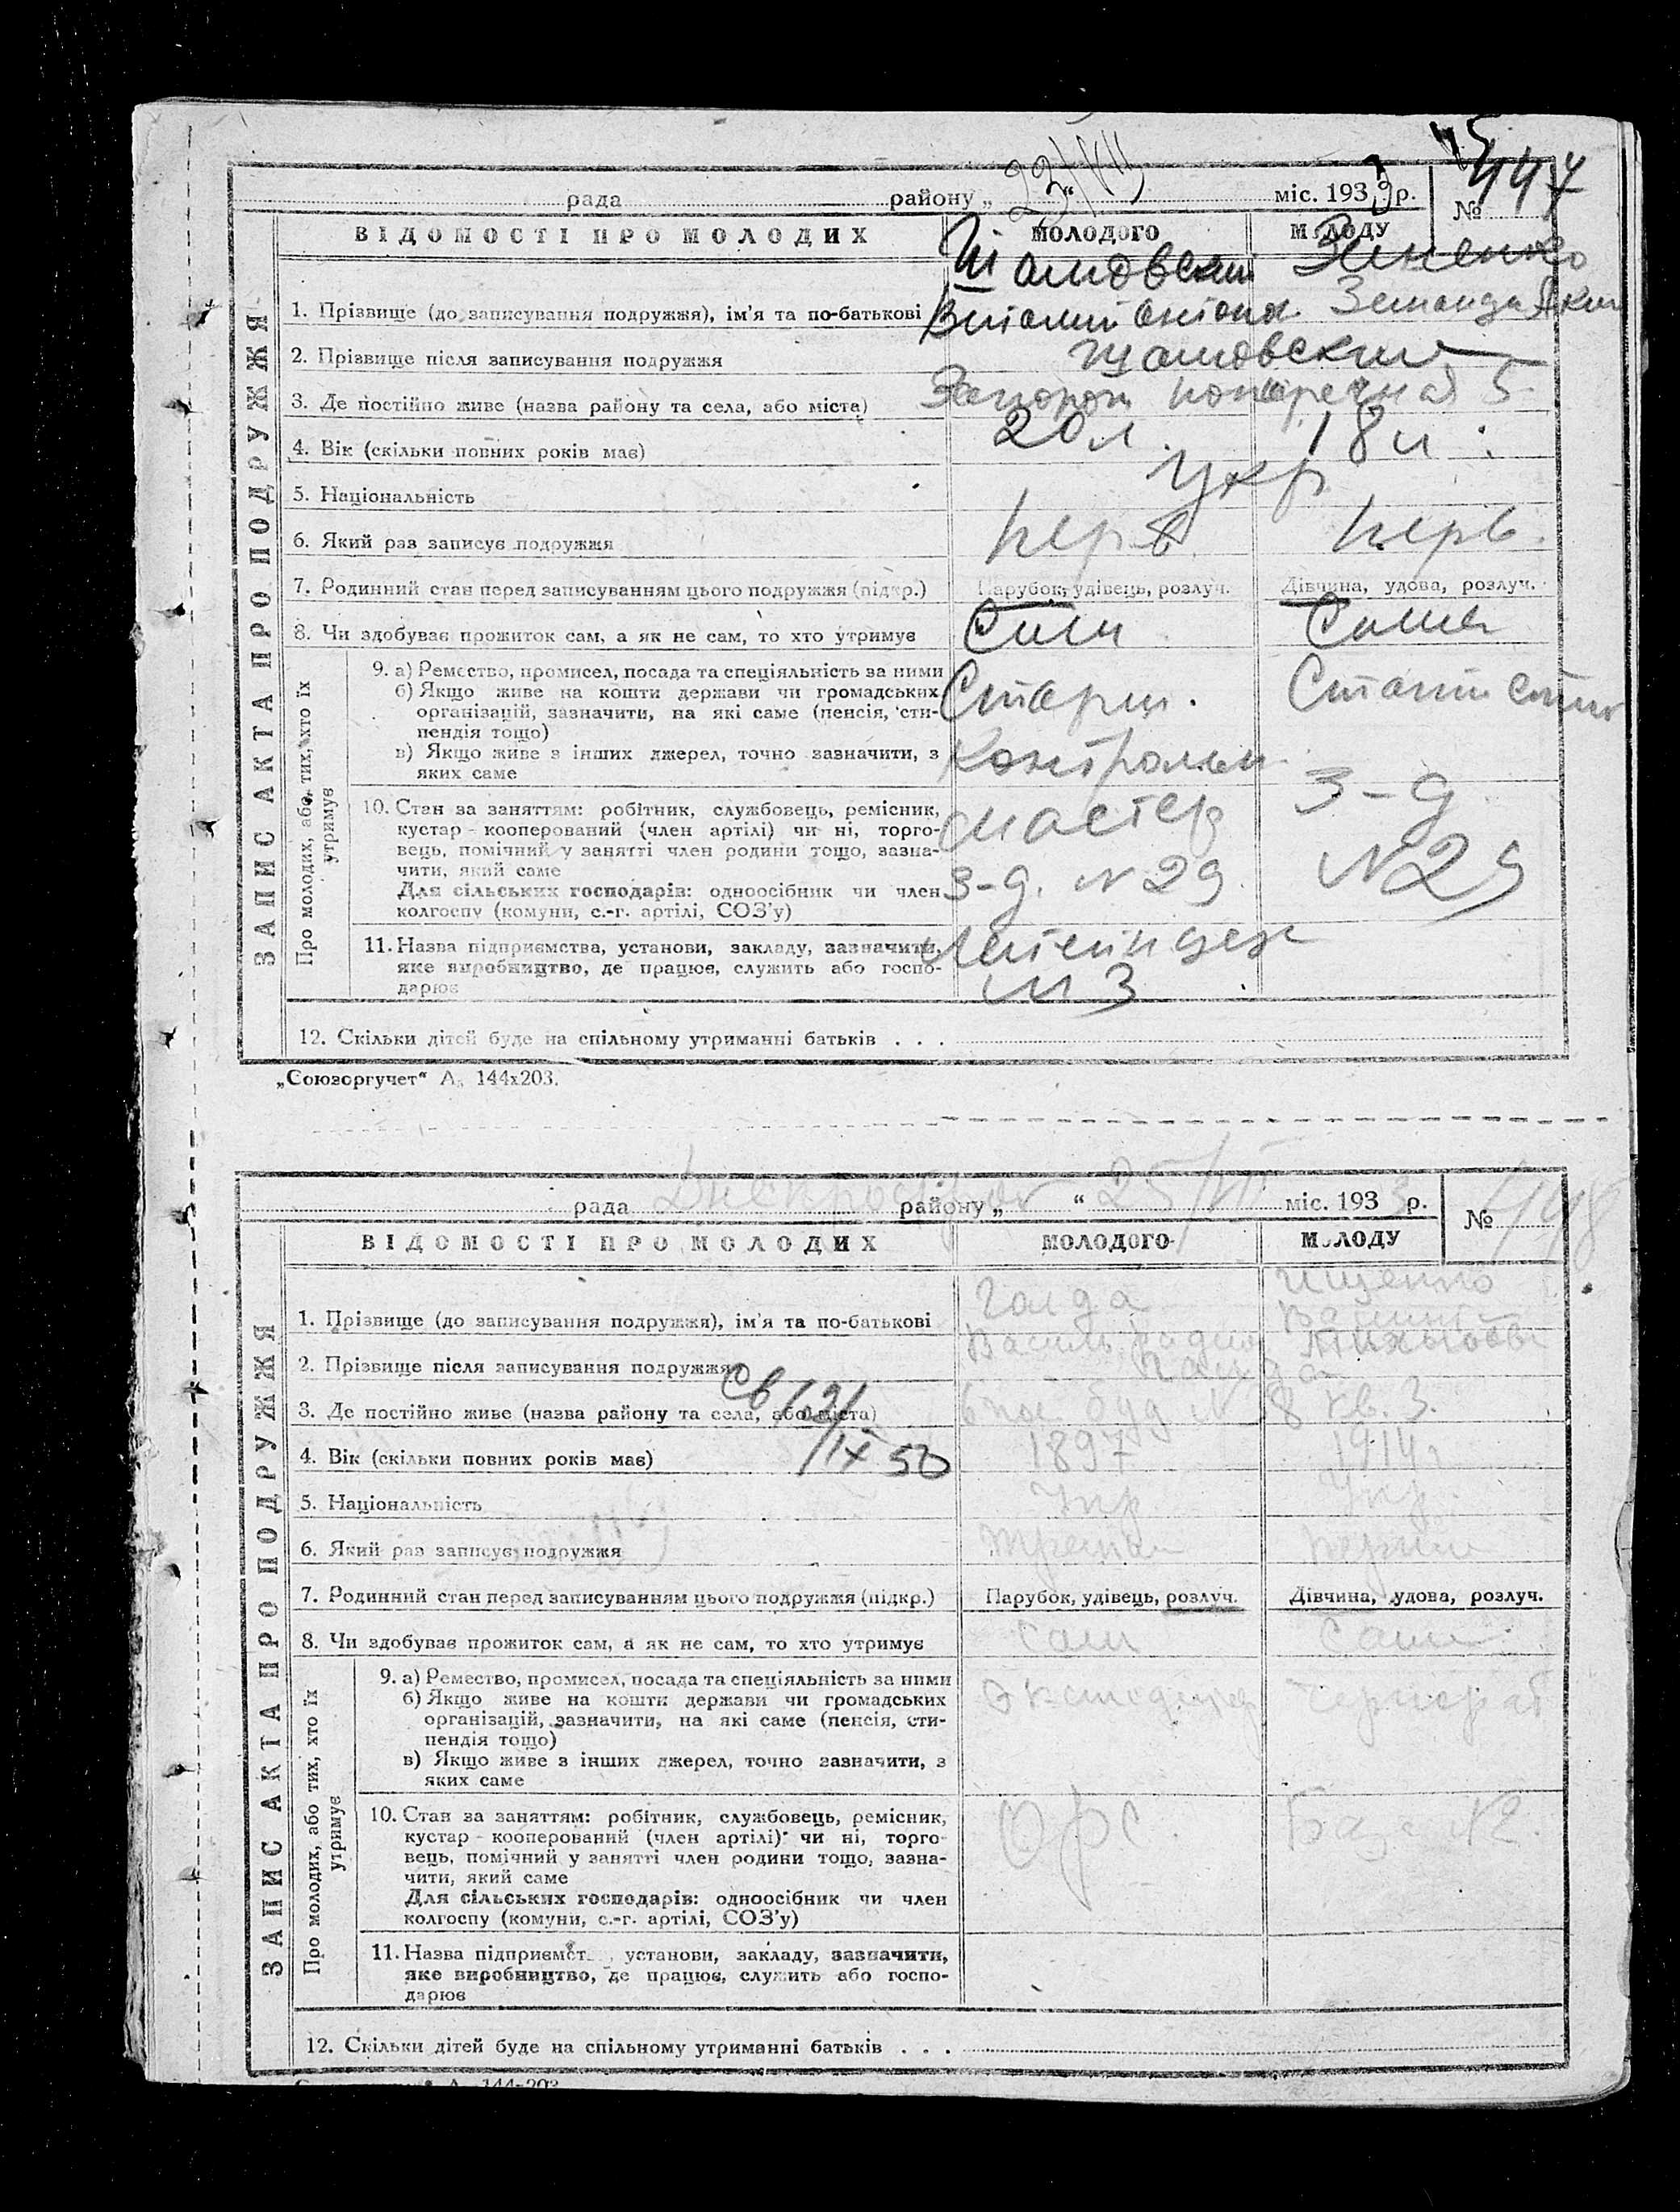 447
рада району „ 23/VII " міс. 1933 р. №
ВІДОМОСТІ ПРО МОЛОДИХ МОЛОДОГО МОЛОДУ
ЗАПИС АКТА ПРО ПОДРУЖЖЯ
Зиненко
1. Прізвище (до записування подружжя), ім'я та по-батькові Виталий Антон. Зинаида
2. Прізвище після записування подружжя
3. Де постійно живе (назва району та села, або міста) Запорож поперечная 5
4. Вік (скільки повних років має) 20 л. 18 л.
5. Національність Укр
6. Який раз записує подружжя перв. перв.
7. Родинний стан перед записуванням цього подружжя (підкр.) Парубок, удівець, розлуч. Дівчина, удова, розлуч.
8. Чи здобуває прожиток сам, а як не сам, то хто утримує Сам Сама
Про молодих, або тих, хто їх утримує
9. а) Ремество, промисел, посада та спеціяльність за ними
б) Якщо живе на кошти держави чи громадських Старш.
організацій, зазначити, на які саме (пенсія, сти-
пендія тощо)
в) Якщо живе з інших джерел, точно зазначити, з
яких саме
10. Стан за заняттям: робітник, службовець, ремісник, мастер З-д
кустар - кооперований (член артілі) чи ні, торго-
вець, помічний у занятті член родини тощо, зазна-
чити, який саме
Для сільських господарів: одноосібник чи член З-д. № 29 № 29
колгоспу (комуни, с.-г. артілі, СОЗ'у)
11. Назва підприємства, установи, закладу, зазначити,
яке виробництво, де працює, служить або госпо-
дарює
12. Скільки дітей буде на спільному утриманні батьків . . .
„Союзоргучет" А. 144х203.
рада району „ " 25/VII міс. 1933 р. № 448
ВІДОМОСТІ ПРО МОЛОДИХ МОЛОДОГО МОЛОДУ
ЗАПИС АКТА ПРО ПОДРУЖЖЯ
Ищенко
1. Прізвище (до записування подружжя), ім'я та по-батькові
2. Прізвище після записування подружжя
3. Де постійно живе (назва району та села, або міста) 6 пос. буд № 8 кв. 3.
4. Вік (скільки повних років має) IX 50 1897 1914 г
5. Національність Укр Укр.
6. Який раз записує подружжя
7. Родинний стан перед записуванням цього подружжя (підкр.) Парубок, удівець, розлуч. Дівчина, удова, розлуч.
8. Чи здобуває прожиток сам, а як не сам, то хто утримує Сам Сама
Про молодих, або тих, хто їх утримує
9. а) Ремество, промисел, посада та спеціяльність за ними
б) Якщо живе на кошти держави чи громадських Экспедитор Чернораб
організацій, зазначити, на які саме (пенсія, сти-
пендія тощо)
в) Якщо живе з інших джерел, точно зазначити, з
яких саме
10. Стан за заняттям: робітник, службовець, ремісник, Орс База №2.
кустар - кооперований (член артілі) чи ні, торго-
вець, помічний у занятті член родини тощо, зазна-
чити, який саме
Для сільських господарів: одноосібник чи член
колгоспу (комуни, с.-г. артілі, СОЗ'у)
11. Назва підприємст , установи, закладу, зазначити,
яке виробництво, де працює, служить або госпо-
дарює
12. Скільки дітей буде на спільному утриманні батьків . . .